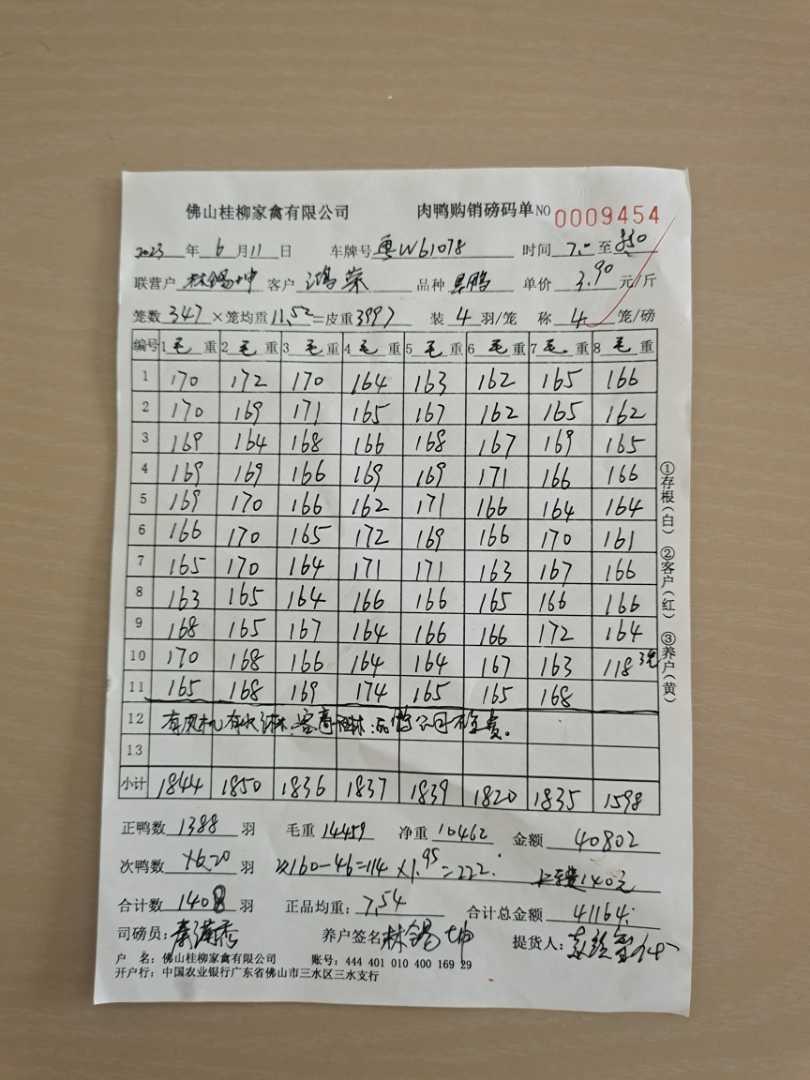 佛山桂柳家禽有限公司 肉鸭购销磅码单 NO 0009454
2023 年 6 月 11 日 车牌号 粤Wb1078 时间 7.0 至 850
联营户 林锡坤 客户 鸿荣 品种 单价 3.90 元/斤
笼数 347 ×笼均重 11.52 =皮重 3997 装 4 羽/笼 称 4 笼/磅
编号 1 毛 重 2 毛 重 3 毛 重 4 毛 重 5 毛 重 6 毛 重 7 毛 重 8 毛 重
1 170 172 170 164 163 162 165 166
2 170 169 171 165 167 162 165 162
3 169 164 168 166 168 167 169 165
4 169 169 166 169 169 171 166 166
5 169 170 166 162 171 166 164 164
6 166 170 165 172 169 166 170 161
7 165 170 164 171 171 163 167 166
8 163 165 164 166 166 165 166 166
9 168 165 167 164 166 166 172 164
10 170 168 166 164 164 167 163 118
11 165 168 169 174 165 165 168
12 有风机有水淋
13
小计 1844 1850 1836 1837 1839 1820 1835 1598
正鸭数 1388 羽 毛重 14459 净重 10462 金额 40802
次鸭数 羽 160-46=114×1.95=222
合计数 1408 羽 正品均重: 7.54 合计总金额 41164
司磅员: 养户签名 林锡坤 提货人:
户 名: 佛山桂柳家禽有限公司 账号: 444 401 010 400 169 29
开户行: 中国农业银行广东省佛山市三水区三水支行
①存根(白) ②客户(红) ③养户(黄)